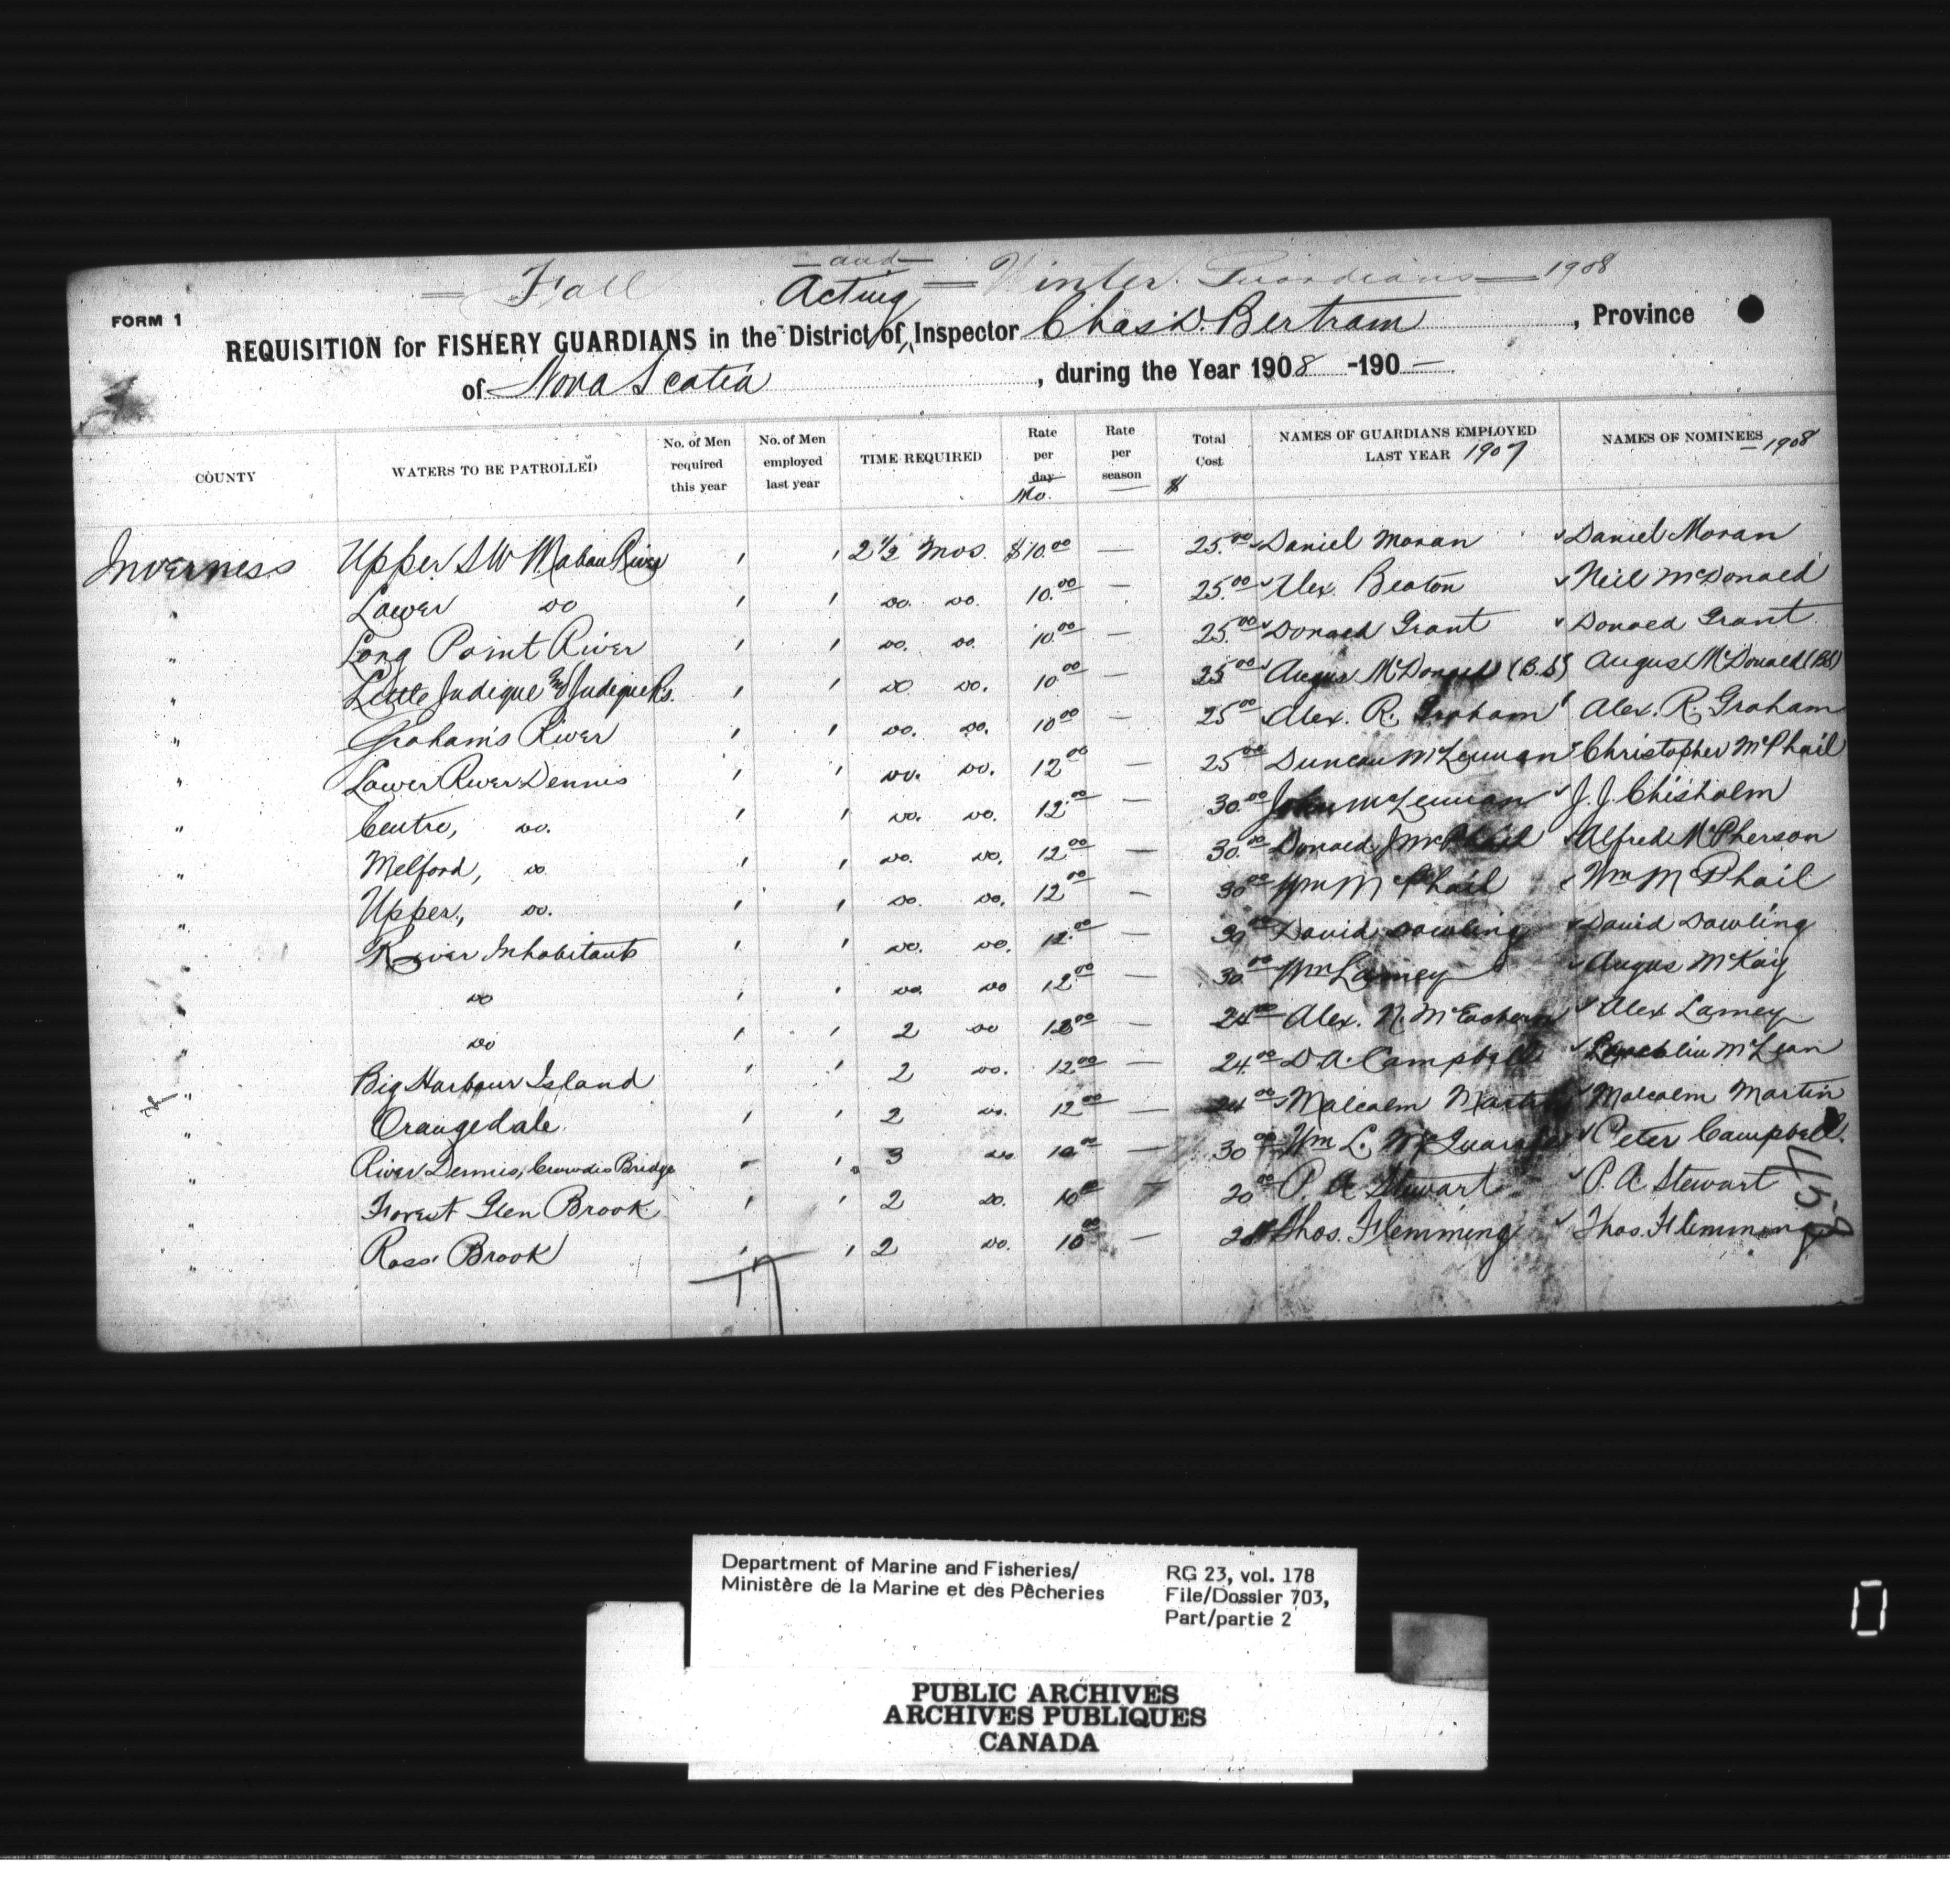 = Fall and = Winter Guardians = 1908
Acting
FORM 1
REQUISITION for FISHERY GUARDIANS in the District of Inspector Chas. D. Bertram, Province
of Nova Scotia, during the Year 1908 -190 —
COUNTY WATERS TO BE PATROLLED No. of Men required this year No. of Men employed last year TIME REQUIRED Rate per day Mo. Rate per season Total Cost $ NAMES OF GUARDIANS EMPLOYED LAST YEAR 1907 NAMES OF NOMINEES — 1908
Inverness Upper S W Mabou River 1 1 2 1/2 mos. $10.00 — 25.00 Daniel Moran Daniel Moran
" Lower do 1 1 do. do. 10.00 — 25.00 Alex. Beaton Neil McDonald
" Long Point River 1 1 do. do. 10.00 — 25.00 Donald Grant Donald Grant
" Little Judique and Judique Rs. 1 1 do do. 10.00 — 25.00 Angus McDonald (B.S) Angus McDonald (BS)
" Grahams River 1 1 do. do. 10.00 — 25.00 Alex. R. Graham Alex. R. Graham
" Lower River Dennis 1 1 do. do. 12.00 — 25.00 Duncan McLennan Christopher McPhail
" Centre, do. 1 1 do. do. 12.00 — 30.00 John McLennan J. J. Chisholm
" Melford, do 1 1 do. do. 12.00 — 30.00 Donald J McPhail Alfred McPherson
" Upper, do. 1 1 do. do. 12.00 — 30.00 Wm McPhail Wm McPhail
" River Inhabitants 1 1 do. do. 12.00 — 30.00 David Dowling David Dowling
" do 1 1 do. do 12.00 — 30.00 Wm Lamey Angus McKay
" do 1 1 2 do 12.00 — 24.00 Alex. N. McEachern Alex Lamey
" Big Harbour Island 1 1 2 do. 12.00 — 24.00 D A. Campbell Lauchlin McLean
" Orangedale 1 1 2 do. 12.00 — 24.00 Malcolm Martin Malcolm Martin
" River Dennis, Crowdis Bridge 1 3 do. 10.00 — 30.00 Wm L. McQuarrie Peter Campbell.
" Forest Glen Brook 1 1 2 do. 10.00 — 20.00 P. A Stewart P. A Stewart
" Ross Brook 1 1 2 do. 10.00 — 20 Thos. Flemming Thos. Flemming
17
Department of Marine and Fisheries/
Ministère de la Marine et des Pêcheries
RG 23, vol. 178
File/Dossier 703,
Part/partie 2
PUBLIC ARCHIVES
ARCHIVES PUBLIQUES
CANADA